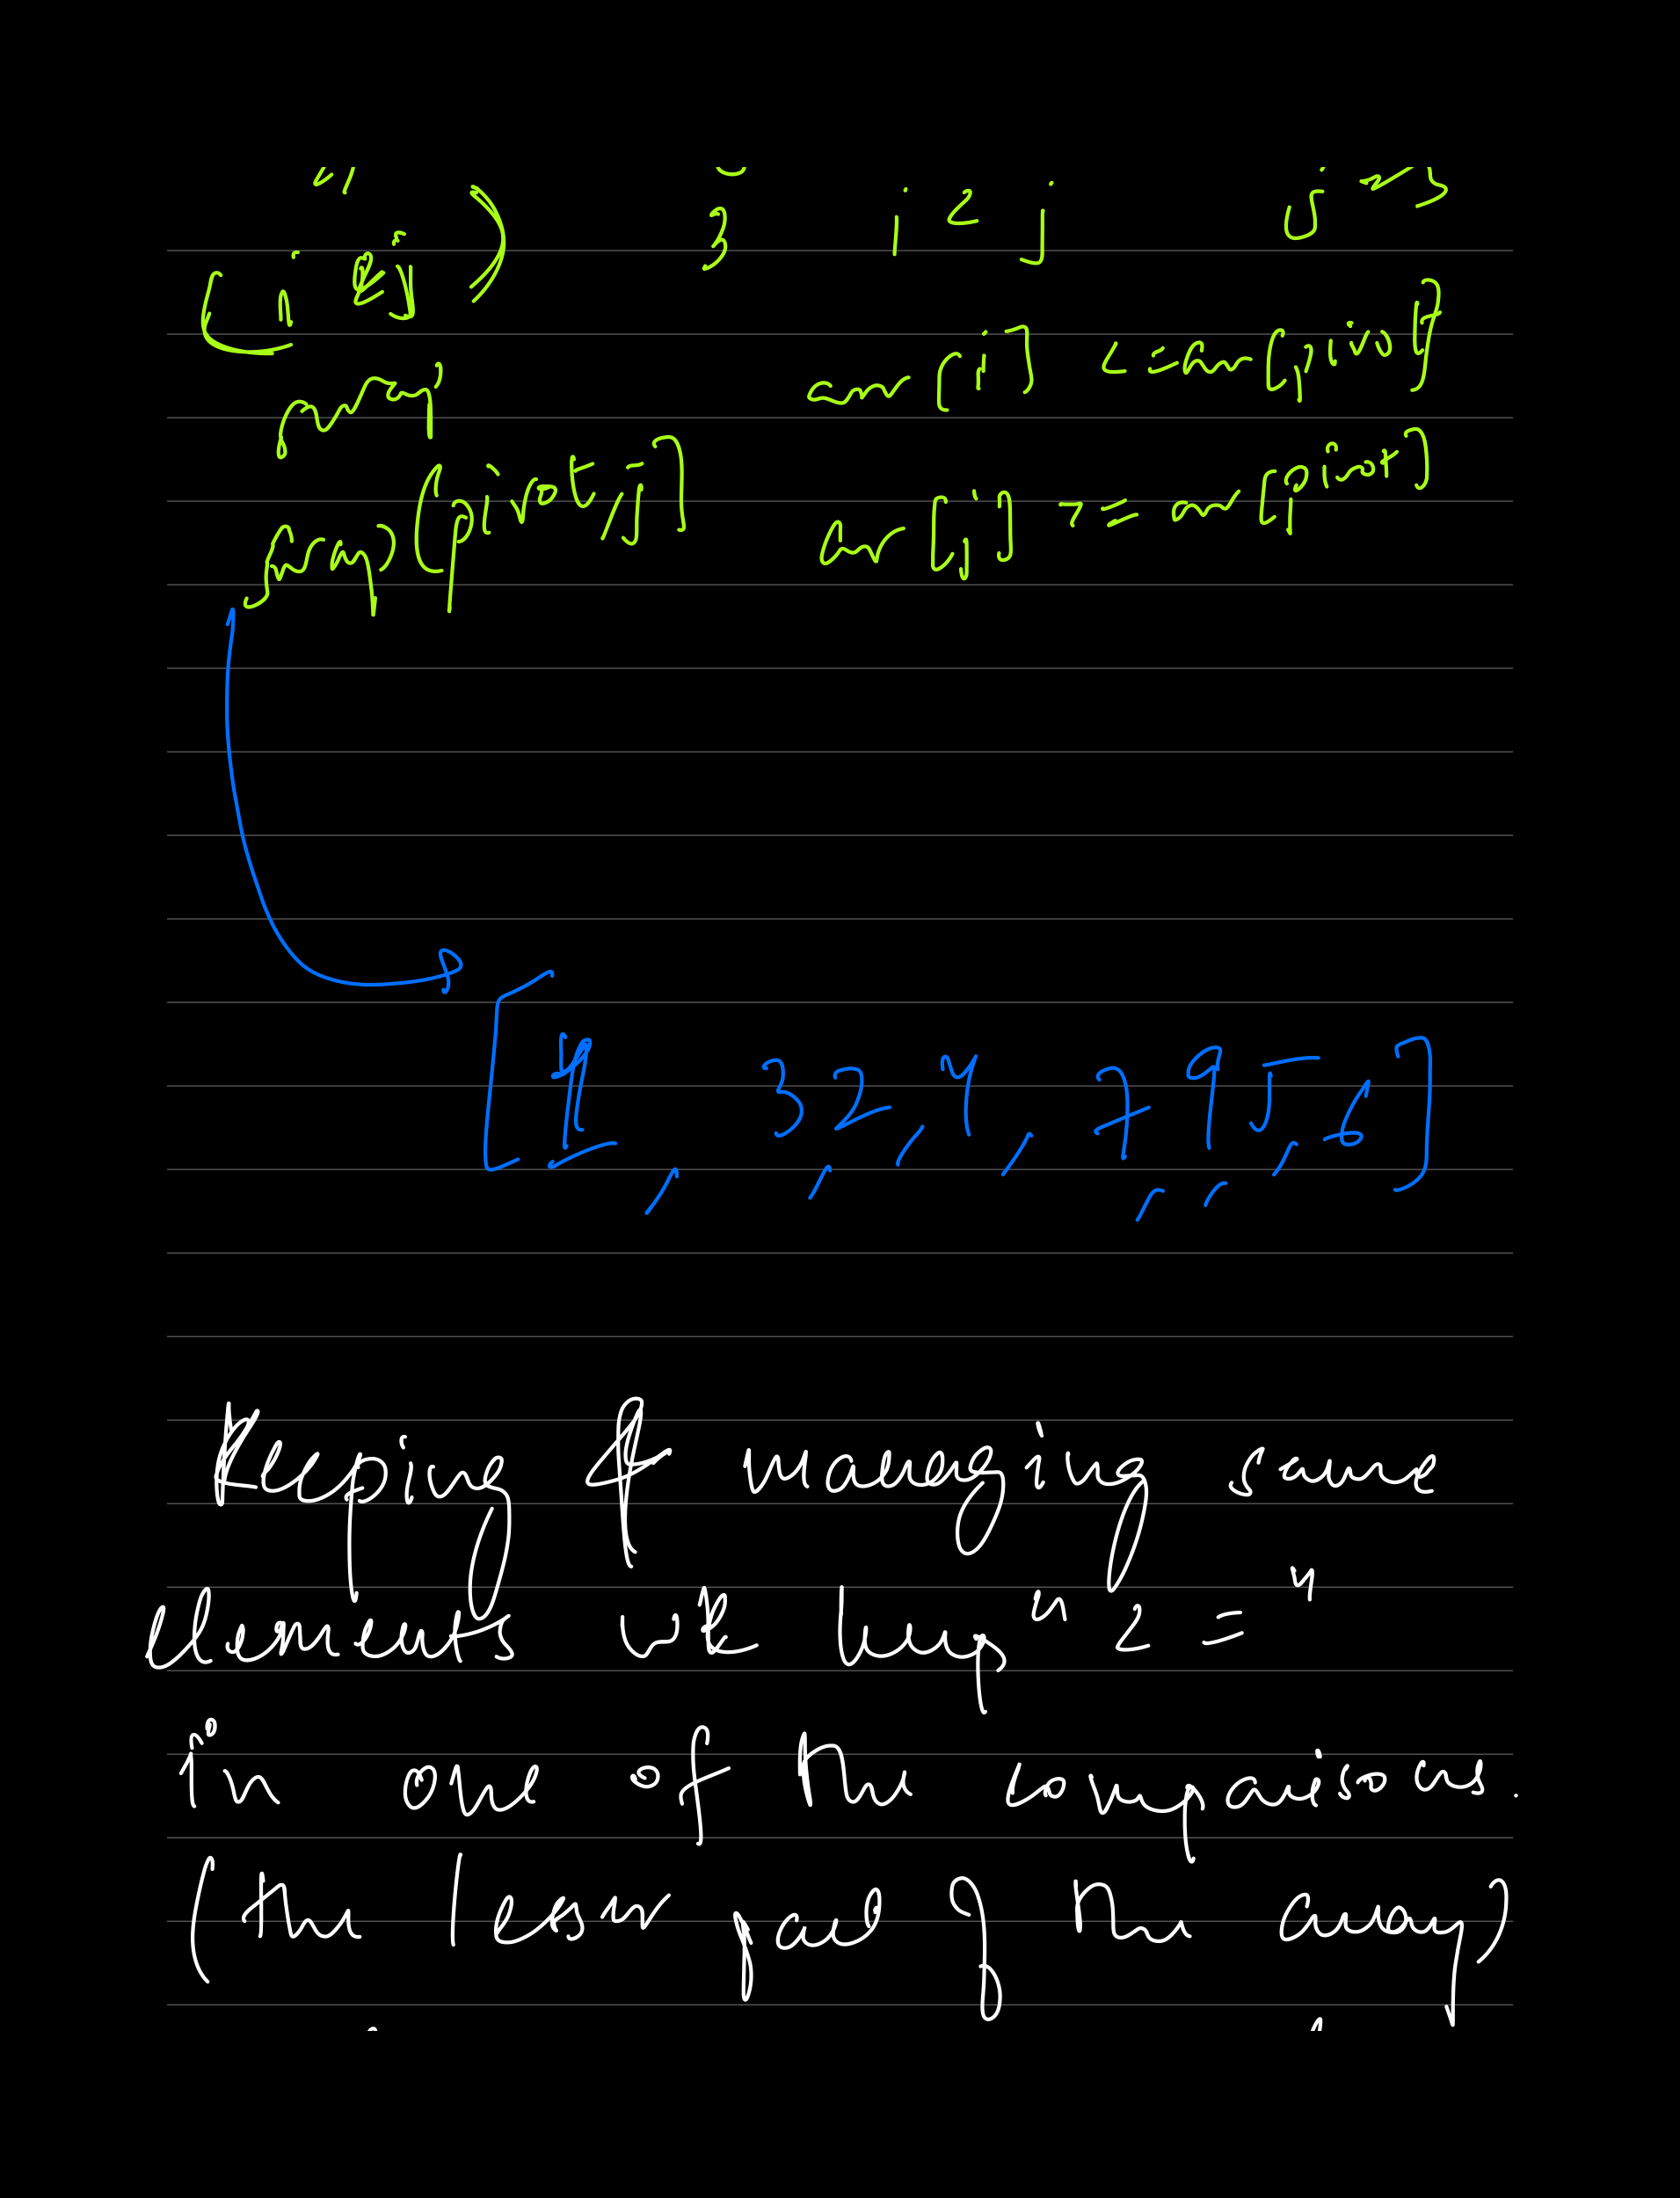 3 i < j j
(i & j)
arr[i] <= arr[pivot]
swap[pivot, j] arr[j] >= arr[pivot]
[1, 3, 2, 4, 7, 9, 5, 6]
Keeping & managing same
elements we keep " < = "
in one of the comparisons.
(the lesser part of the array)